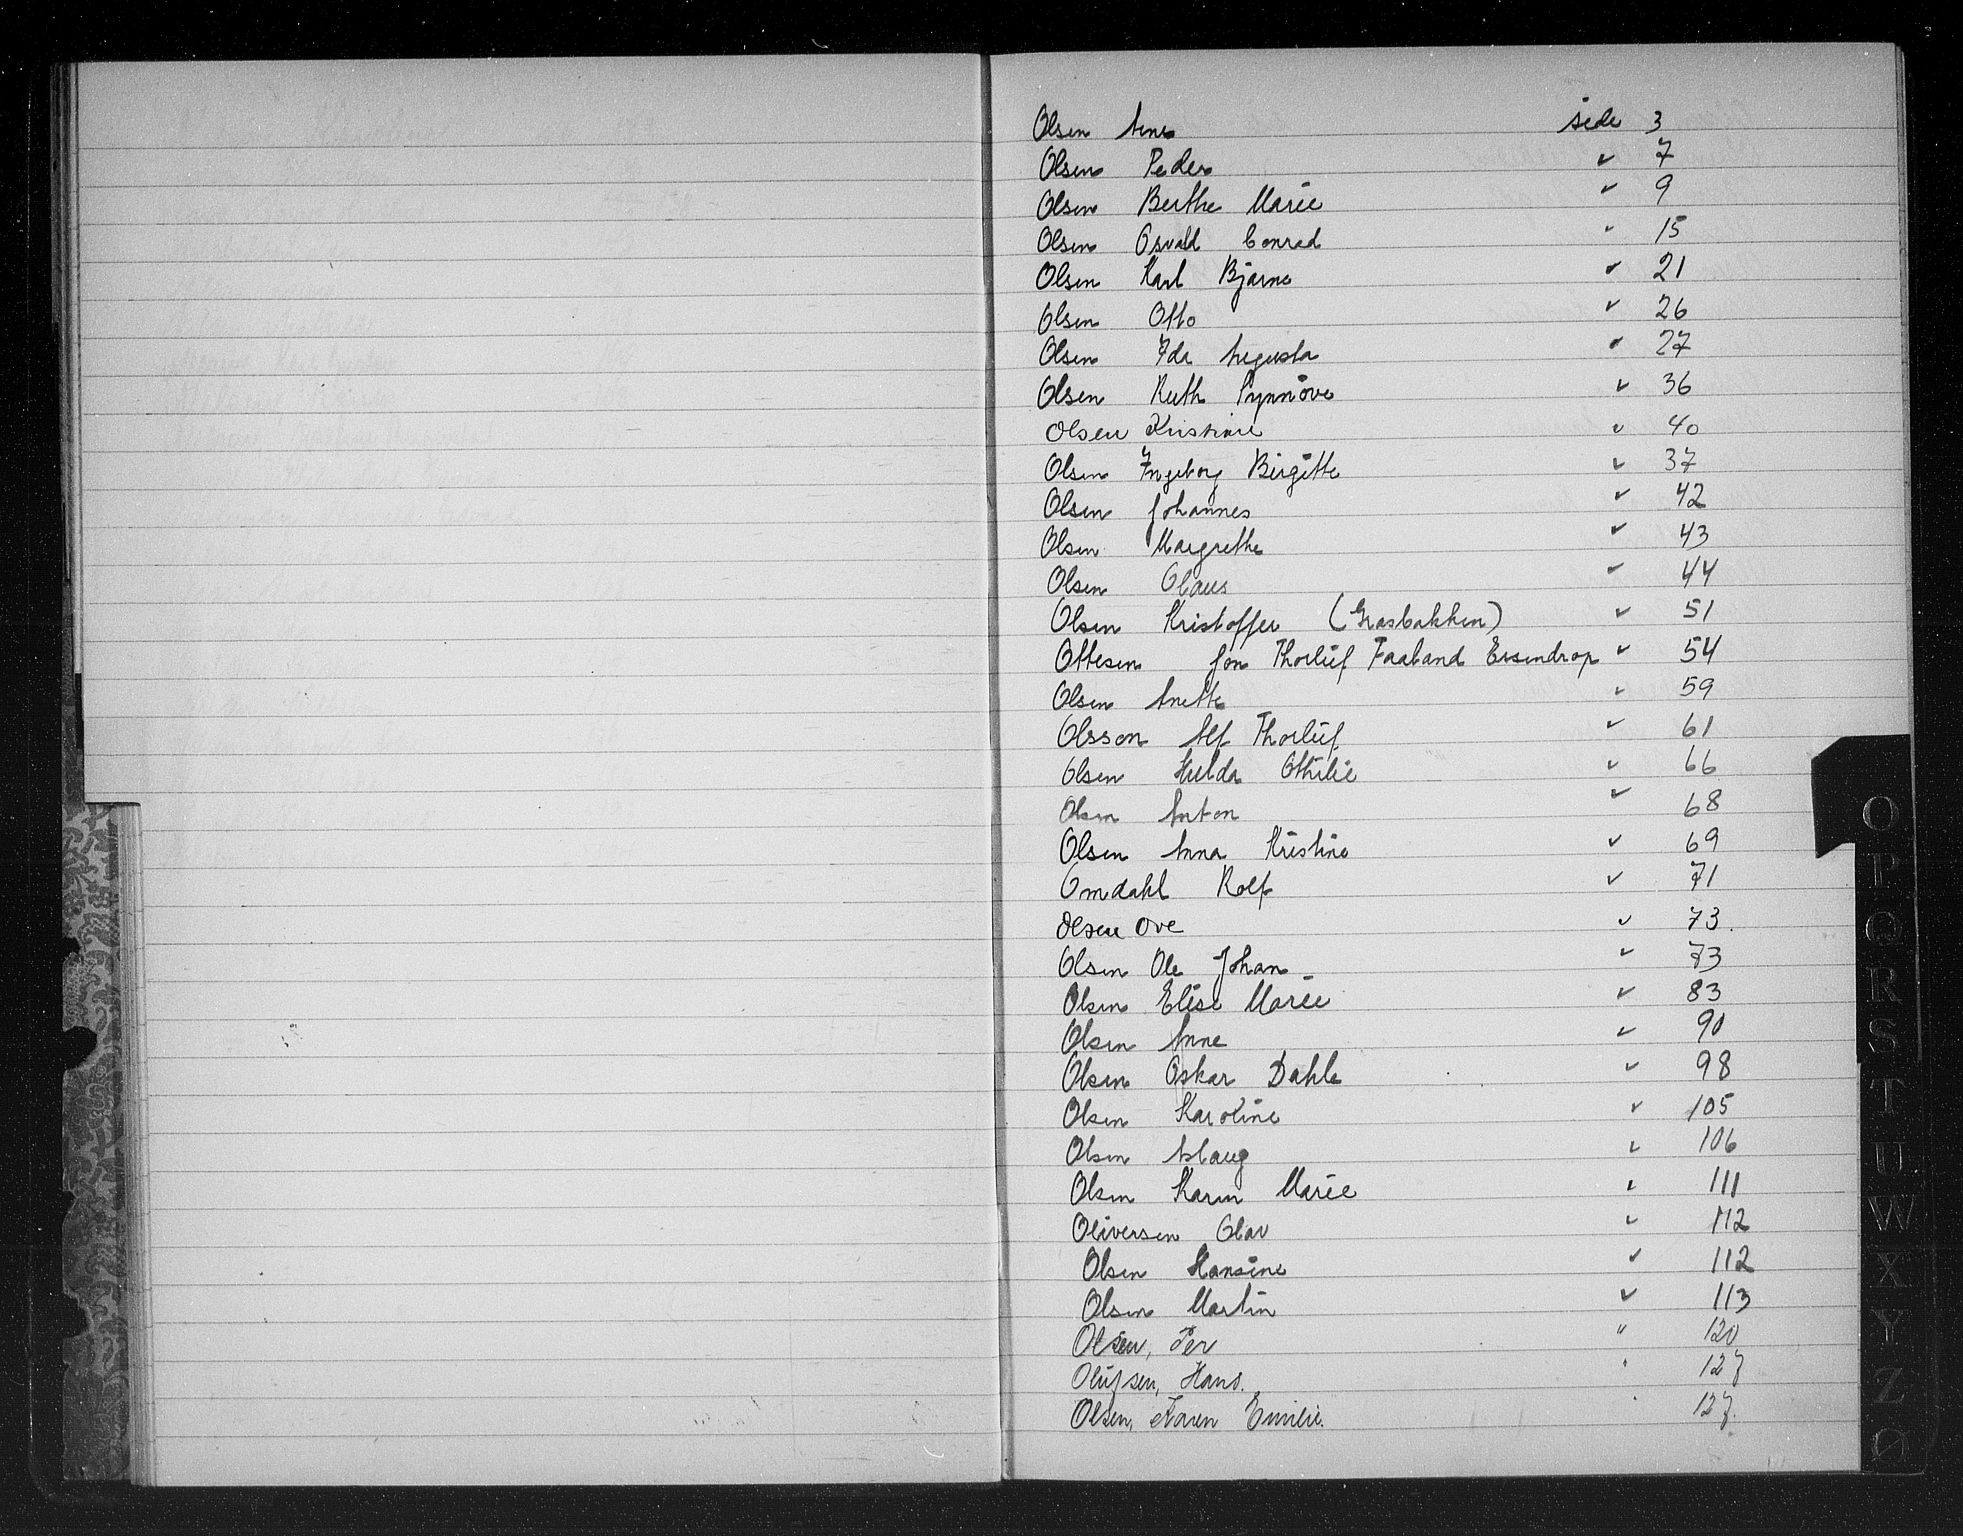 Olsen Arne side 3
Olsen Peder " 7
Olsen Berthe Marie " 9
Olsen Osvald Conrad " 15
Olsen Karl Bjarne " 21
Olsen Otto " 26
Olsen Ida Augusta " 27
Olsen Ruth Synnöve " 36
Olsen Kristine " 40
Olsen Ingeborg Birgitte " 37
Olsen Johannes " 42
Olsen Margrethe " 43
Olsen Olaus " 44
Olsen Kristoffer (Grasbakken) " 51
Ottesen Jon Thorleif Faaland Essendrop " 54
Olsen Anette " 59
Olsson Alf Thorleif " 61
Olsen Hulda Othilie " 66
Olsen Anton " 68
Olsen Anna Kristine " 69
Omdahl Rolf " 71
Olsen Ove " 73.
Olsen Ole Johan " 73
Olsen Elise Marie " 83
Olsen Anne " 90
Olsen Oskar Dahle " 98
Olsen Karoline " 105
Olsen Aslaug " 106
Olsen Karen Marie " 111
Oliversen Olav " 112
Olsen Hansine " 112
Olsen Martin " 113
Olsen, Per " 120
Olufsen, Hans. " 127
Olsen, Karen Emilie. " 127.
O
P
Q
R
S
T
U
W
X
Y
Z
Ø